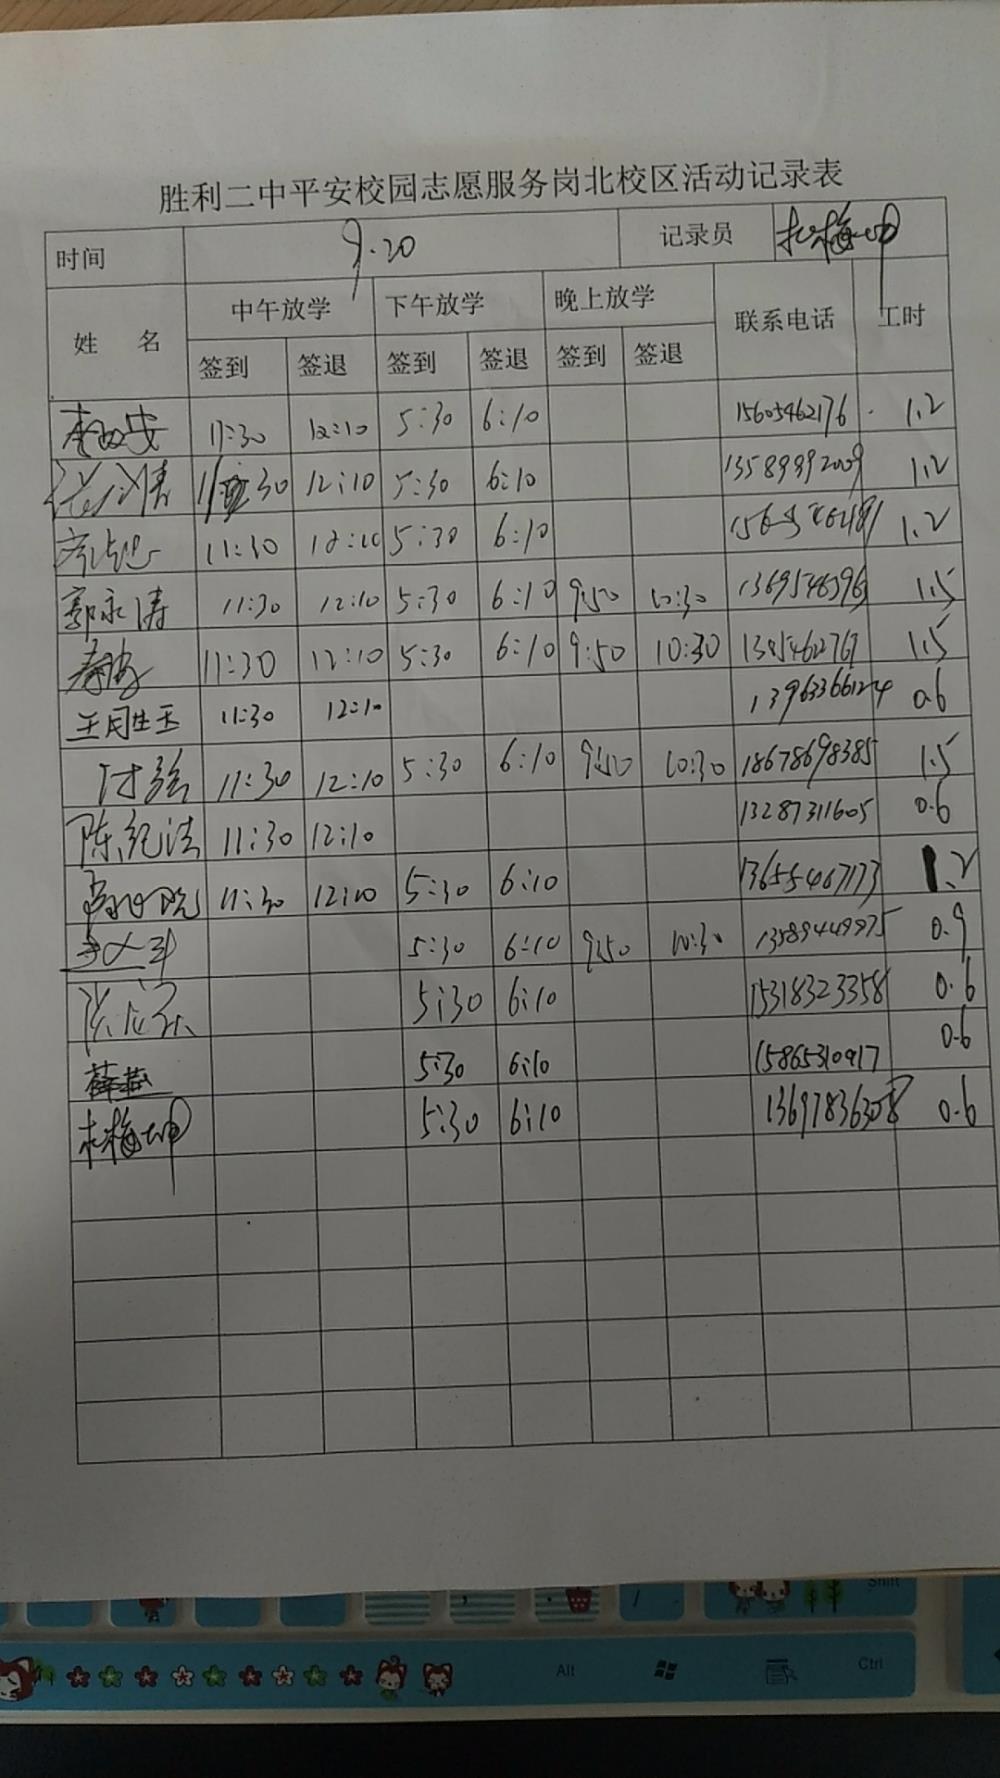 胜利二中平安校园志愿服务岗北校区活动记录表
时间 9.20 记录员 杜梅坤
姓 名 中午放学 下午放学 晚上放学 联系电话 工时
签到 签退 签到 签退 签到 签退
11:30 12:10 5:30 6:10 15605462176 1.2
11:30 12:10 5:30 6:10 13589992009 1.2
11:30 12:10 5:30 6:10 1.2
郭永涛 11:30 12:10 5:30 6:10 9:50 10:30 1.5
11:30 12:10 5:30 6:10 9:50 10:30 1.5
王胜玉 11:30 12:10 13963366124 0.6
付强 11:30 12:10 5:30 6:10 9:50 10:30 18678698385 1.5
陈纪法 11:30 12:10 13287311605 0.6
11:30 12:10 5:30 6:10 13655467173 1.2
5:30 6:10 9:50 10:30 13589449975 0.9
5:30 6:10 15318323358 0.6
薛燕 5:30 6:10 15865310917 0.6
杜梅坤 5:30 6:10 13697836308 0.6
Shift
Alt Ctrl